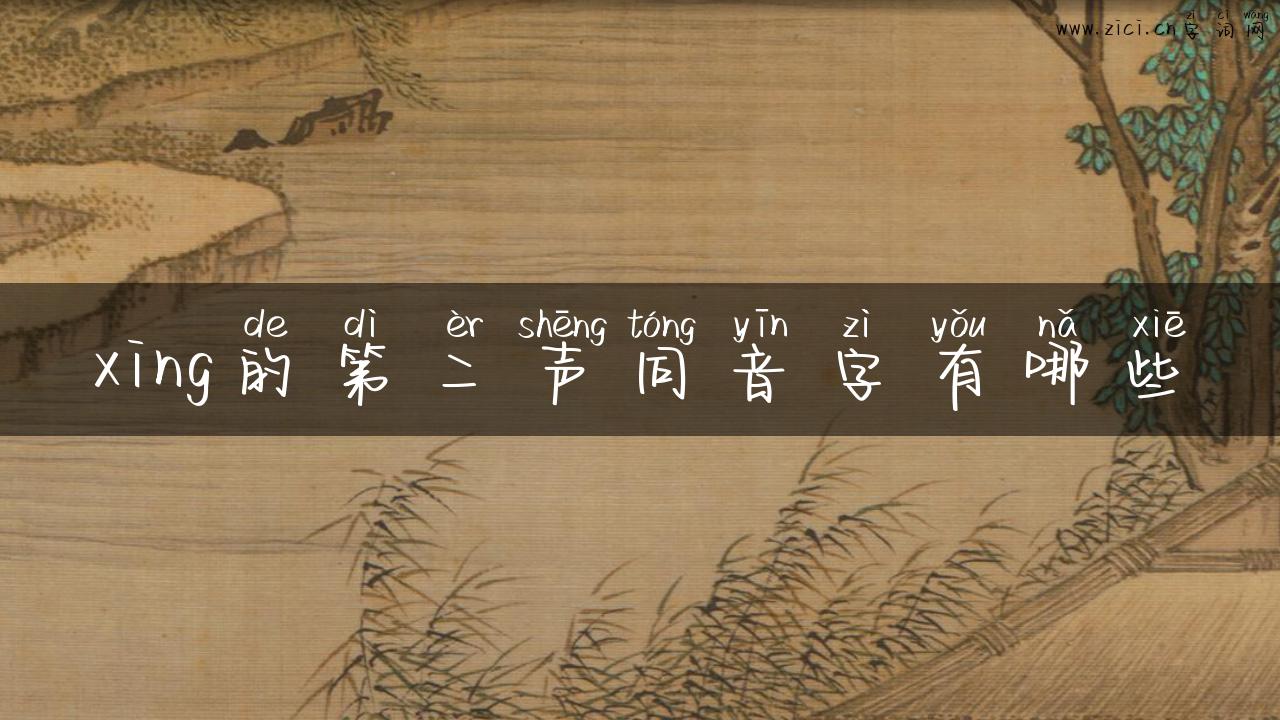 zì cí wǎng
www.zici.cn字词网
de dì èr shēng tóng yīn zì yǒu nǎ xiē
xing的第二声同音字有哪些